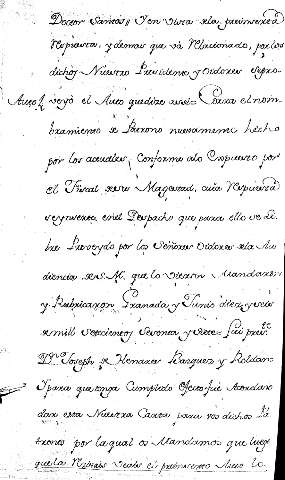 Doctor Santos; Y en vista de la preinserta
Respuesta, y demas que và Relacionado, por los
dichos Nuestro Presidente, y Oidores se pro-
Auto // veyò el Auto que dize assi = Para el nom-
bramiento de Patrono nuevamente hecho
por los actuales, Conforme alo Expuesto por
el Fiscal de su Magestad, cuia Respuesta
se ynserte en el Despacho que para ello se li-
bre Proveydo por los Señores Oidores de la Au-
diencia de S. M. que lo vieron y Mandaron
y Rubricaron Granada y Junio diez y seis
de mill Setecientos Setenta y siete = fui press.te
D.n Joseph de Henares Barquez y Roldan
Y para que tenga Cumplido efecto fué Acordado
dar esta Nuestra Carta para vos dichos Pa
tronos por la qual os Mandamos que luego
que la Recivais Veais el preinserto Auto